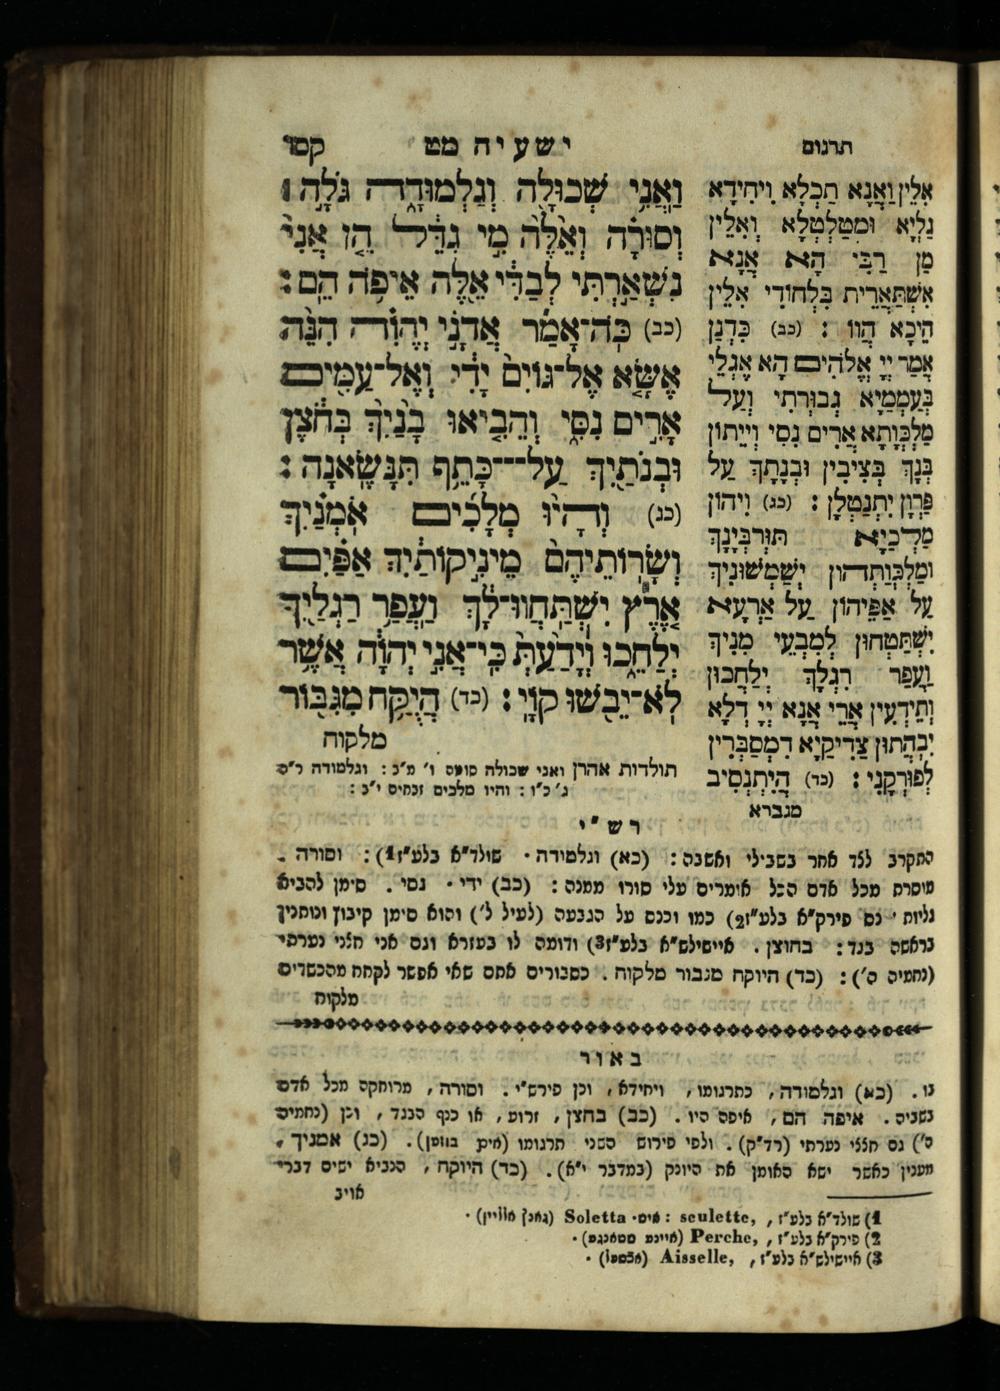 תרגום
ישעיה מט
קסו
וַאֲנִי שְׁכוּלָה וְגַלְמוּדָה גֹּלָה ׀
וְסוּרָה וְאֵלֶּה מִי גִדֵּל הֵן אֲנִי
נִשְׁאַרְתִּי לְבַדִּי אֵלֶּה אֵיפֹה הֵם :
(כב) כֹּה־אָמַר אֲדֹנָי יְהֹוִה הִנֵּה
אֶשָּׂא אֶל־גּוֹיִם יָדִי וְאֶל־עַמִּים
אָרִים נִסִּי וְהֵבִיאוּ בָנַיִךְ בְּחֹצֶן
וּבְנֹתַיִךְ עַל־כָּתֵף תִּנָּשֶׂאנָה :
(כג) וְהָיוּ מְלָכִים אֹמְנַיִךְ
וְשָׂרוֹתֵיהֶם מֵינִיקוֹתַיִךְ אַפַּיִם
אֶרֶץ יִשְׁתַּחֲווּ־לָךְ וַעֲפַר רַגְלַיִךְ
יְלַחֵכוּ וְיָדַעַתְּ כִּי־אֲנִי יְהֹוָה אֲשֶׁר
לֹא־יֵבשׁוּ קוָֹי : (כד) הֲיֻקַּח מִגִּבּוֹר
מלקוח
תולדות אהרן ואני שכולה סוטה ו' מ"ב : וגלמודה ר"ה
ג' כ"ו : והיו מלכים זבחים י"ב :
אִלֵּין וַאֲנָא תַכְלָא וִיחִידָא
גַּלְיָא וּמְטַלְטְלָא וְאִלֵּין
מַן רַבִּי הָא אֲנָא
אִשְׁתְּאָרִית בִּלְחוֹדִי אִלֵּין
הֵיכָא הֲווֹ : (כב) כִּדְנַן
אֲמַר יְיָ אֱלֹהִים הָא אֶגְלֵי
בְּעַמְמַיָא גְּבוּרְתִּי וְעַל
מַלְכְּוָתָא אָרִים נִסִי וְיֵיתוֹן
בְּנָךְ בְּצִיבִין וּבְנָתָךְ עַל
פַּרְוָן יִתְנַטְלָן : (כג) וִיהוֹן
מַלְכַיָא תּוּרְבְּיָנָךְ
וּמַלְכְּוַתְהוֹן יְשַׁמְשׁוּנִיךְ
עַל אַפֵּיהוֹן עַל אַרְעָא
יִשְׁתַּטְּחוּן לְמִבְעֵי מִנִּיךְ
וַעֲפַר רִגְלָךְ יְלַחֲכוּן
וְתֵידְעִין אֲרֵי אֲנָא יְיָ דְּלָא
יִבְהֲתוּן צַדִּיקַיָא דִמְסַבְּרִין
לְפוּרְקָנִי : (כד) הֲיִתְנְסִיב
מגברא
רש"י
התקרב לצד אחר בשבילי ואשבה : (כא) וגלמודה · שולד"א בלע"ז1) : וסורה .
מוסרת מכל אדם הכל אומרים עלי סורו ממנה : (כב) ידי · נסי . סימן להביא
גליות · נס פירק"א בלע"ז2) כמו וכנס על הגבעה (לעיל ל') והוא סימן קיבוץ ונותנין
בראשה בגד : בחוצן . איישילש"א בלע"ז3) ודומה לו בעזרא וגם אני חצני נערתי
(נחמיה ה') : (כד) היוקח מגבור מלקוח . כסבורים אתם שאי אפשר לקחת מהכשדים
מלקוח
באור
בו . (כא) וגלמודה, כתרגומו, ויחידא, וכן פירש"י . וסורה, מרוחקה מכל אדם
בשביה . איפה הם, איפה היו . (כב) בחצן, זרוע, או כנף הבגד, וכן (נחמיה
ה') גם חצני נערתי (רד"ק) . ולפי פירוש השני תרגומו (אים בוזען) . (כג) אמניך,
מענין כאשר ישא האומן את היונק (במדבר י"א) . (כד) היוקח, הנביא ישים דברי
אויב
1) שולד"א בלע"ז, seulette, :איט· Soletta (גאנץ אלליין) .
2) פירק"א בלע"ז, Perche, (איינע סטאנגע) .
3) איישילש"א בלע"ז, Aisselle, (אכסעל) .